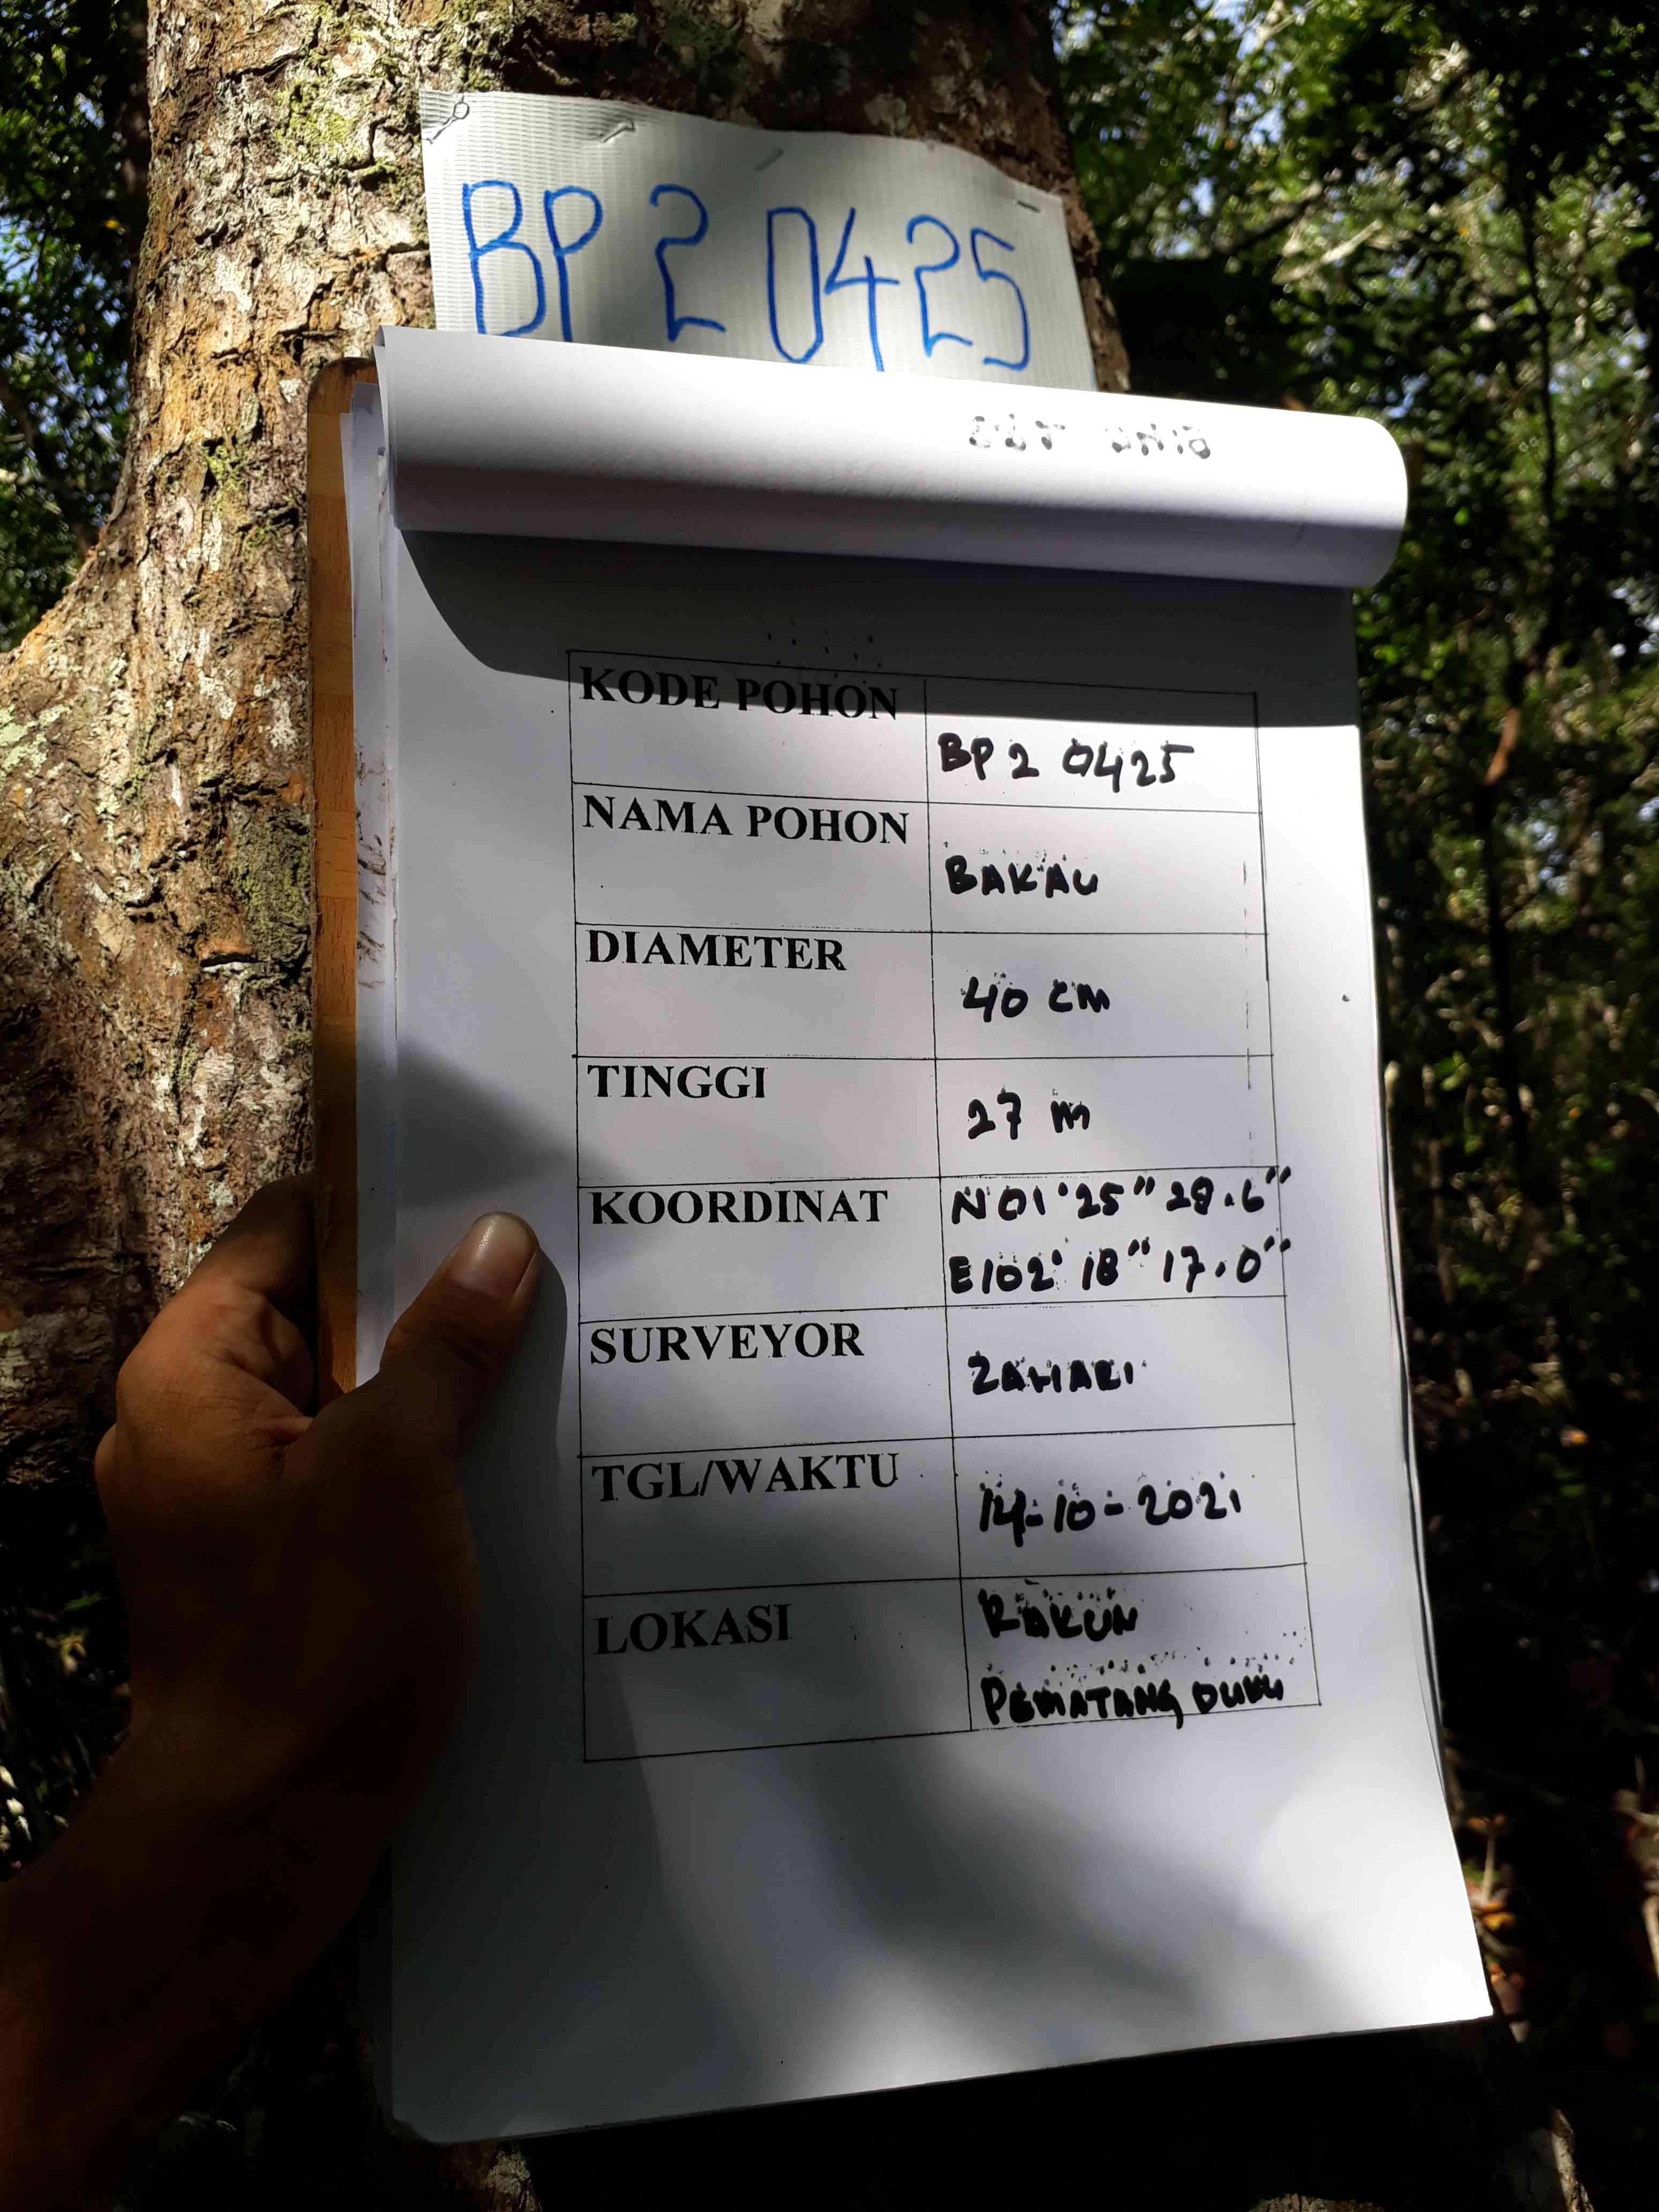 BP 2 0425
KODE POHON
BP 2 0425
NAMA POHON
BAKAU
DIAMETER
40 cm
TINGGI
27 m
KOORDINAT
N 01°25" 28.6"
E102° 18" 17.0"
SURVEYOR
ZAHARI
TGL/WAKTU
14-10-2021
LOKASI
RAKUN
PEMATANG DUKU